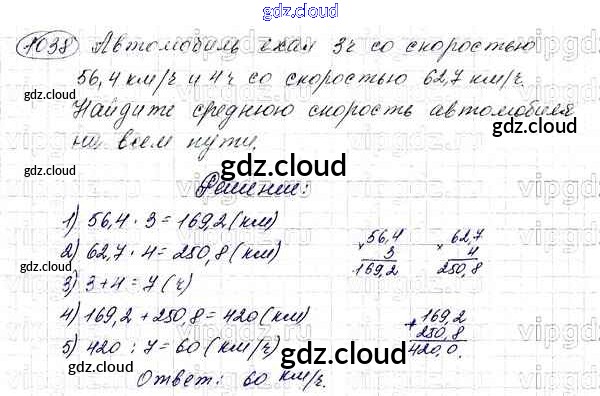 gdz.cloud
1038 Автомобиль ехал 3ч со скоростью
56,4 км/ч и 4ч со скоростью 62,7 км/ч.
gdz.cloud
Найдите среднюю скорость автомобиля
gdz.cloud
на всем пути.
gdz.cloud
Решение:
1) 56,4 · 3 = 169,2 (км)
2) 62,7 · 4 = 250,8 (км)
56,4
× 3
169,2
62,7
× 4
250,8
gdz.cloud
3) 3 + 4 = 7 (ч)
4) 169,2 + 250,8 = 420 (км)
169,2
+ 250,8
420,0.
5) 420 : 7 = 60 (км/ч)
gdz.cloud
gdz.cloud
Ответ: 60 км/ч.